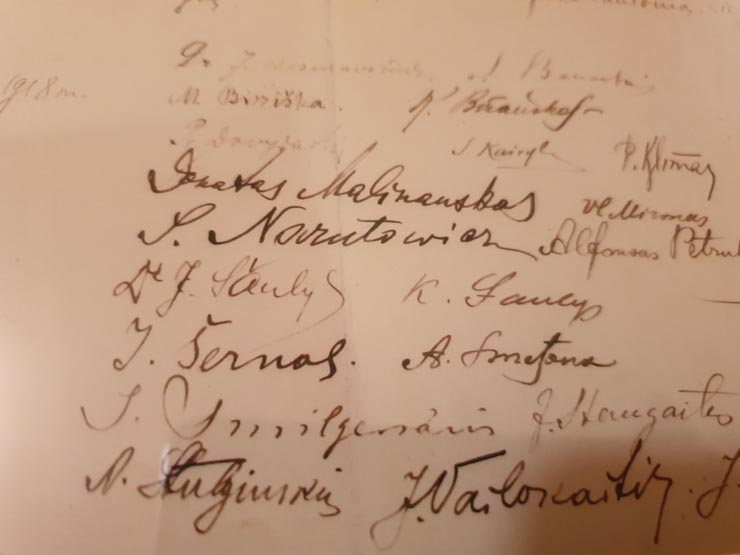 1918 m.
Dr. J. S. Banaitis
M. Biržiška. K. Bizauskas
P. Dovydaitis S. Kairys P. Klimas
Donatas Malinauskas Vl. Mironas
S. Narutowicz Alfonsas Petrul
Dr J. Šaulys K. Šaulys
J. Šernas. A. Smetona
J. Smilgevičius J. Staugaitis
A. Stulginskis J. Vailokaitis J.